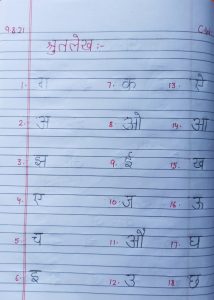 9.8.21
श्रुतलेख :-
1. रा 7. क 13. ऐ
2. अ 8. ओ 14. आ
3. झ 9. ई 15. ख
4. ए 10. ज 16. ऊ
5. च 11. औ 17. घ
6. इ 12. उ 18. छ